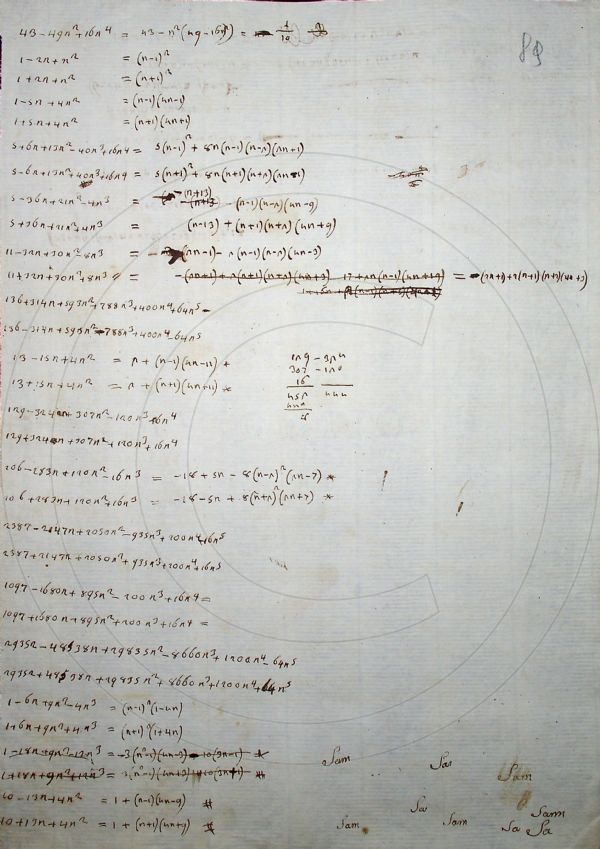 43 - 49n² + 16n⁴ = 43 - n²(49 - 16n²) =
89
1 - 2n + n² = (n-1)²
1 + 2n + n² = (n+1)²
1 - 5n + 4n² = (n-1)(4n-1)
1 + 5n + 4n² = (n+1)(4n+1)
5 + 6n + 13n² - 40n³ + 16n⁴ = 5(n-1)² + 8n(n-1)(n-2)(2n+1)
5 - 6n + 13n² + 40n³ + 16n⁴ = 5(n+1)² + 8n(n+1)(n+2)(2n-1)
5 - 36n + 21n² - 4n³ = (n+13) - (n-1)(n-2)(4n-9)
5 + 36n + 21n² + 4n³ = (n-13) + (n+1)(n+2)(4n+9)
11 - 32n + 30n² - 8n³ = (2n-1) - 2(n-1)(n-2)(4n-3)
11 + 32n + 30n² + 8n³ = -(2n+1) + 2(n+1)(n+2)(4n+3)
136 + 314n + 593n² + 788n³ + 400n⁴ + 64n⁵
136 - 314n + 593n² - 788n³ + 400n⁴ - 64n⁵
13 - 15n + 4n² = 2 + (n-1)(4n-11) *
13 + 15n + 4n² = 2 + (n+1)(4n+11) *
129 - 324n + 307n² - 120n³ + 16n⁴
129 + 324n + 307n² + 120n³ + 16n⁴
129 - 324
307 - 120
16
452 444
444
8
106 - 283n + 120n² - 16n³ = -18 + 5n - 8(n-2)²(2n-7) *
106 + 283n + 120n² + 16n³ = -18 - 5n + 8(n+2)²(2n+7) *
2387 - 2147n + 2050n² - 935n³ + 200n⁴ - 16n⁵
2387 + 2147n + 2050n² + 935n³ + 200n⁴ + 16n⁵
1097 - 1680n + 895n² - 200n³ + 16n⁴ =
1097 + 1680n + 895n² + 200n³ + 16n⁴ =
29352 - 48538n + 29835n² - 8660n³ + 1200n⁴ - 64n⁵
29352 + 48538n + 29835n² + 8660n³ + 1200n⁴ + 64n⁵
1 - 6n + 9n² - 4n³ = (n-1)²(1-4n)
1 + 6n + 9n² + 4n³ = (n+1)²(1+4n)
1 - 18n + 9n² - 12n³ = -3(n²-1)(4n-3) - 10(3n-1) *
1 + 18n + 9n² + 12n³ = 3(n²-1)(4n+3) + 10(3n+1) *
Sam Sa Sam
10 - 13n + 4n² = 1 + (n-1)(4n-9) *
Sa Sam
10 + 13n + 4n² = 1 + (n+1)(4n+9) *
Sam Sam Sa Sa